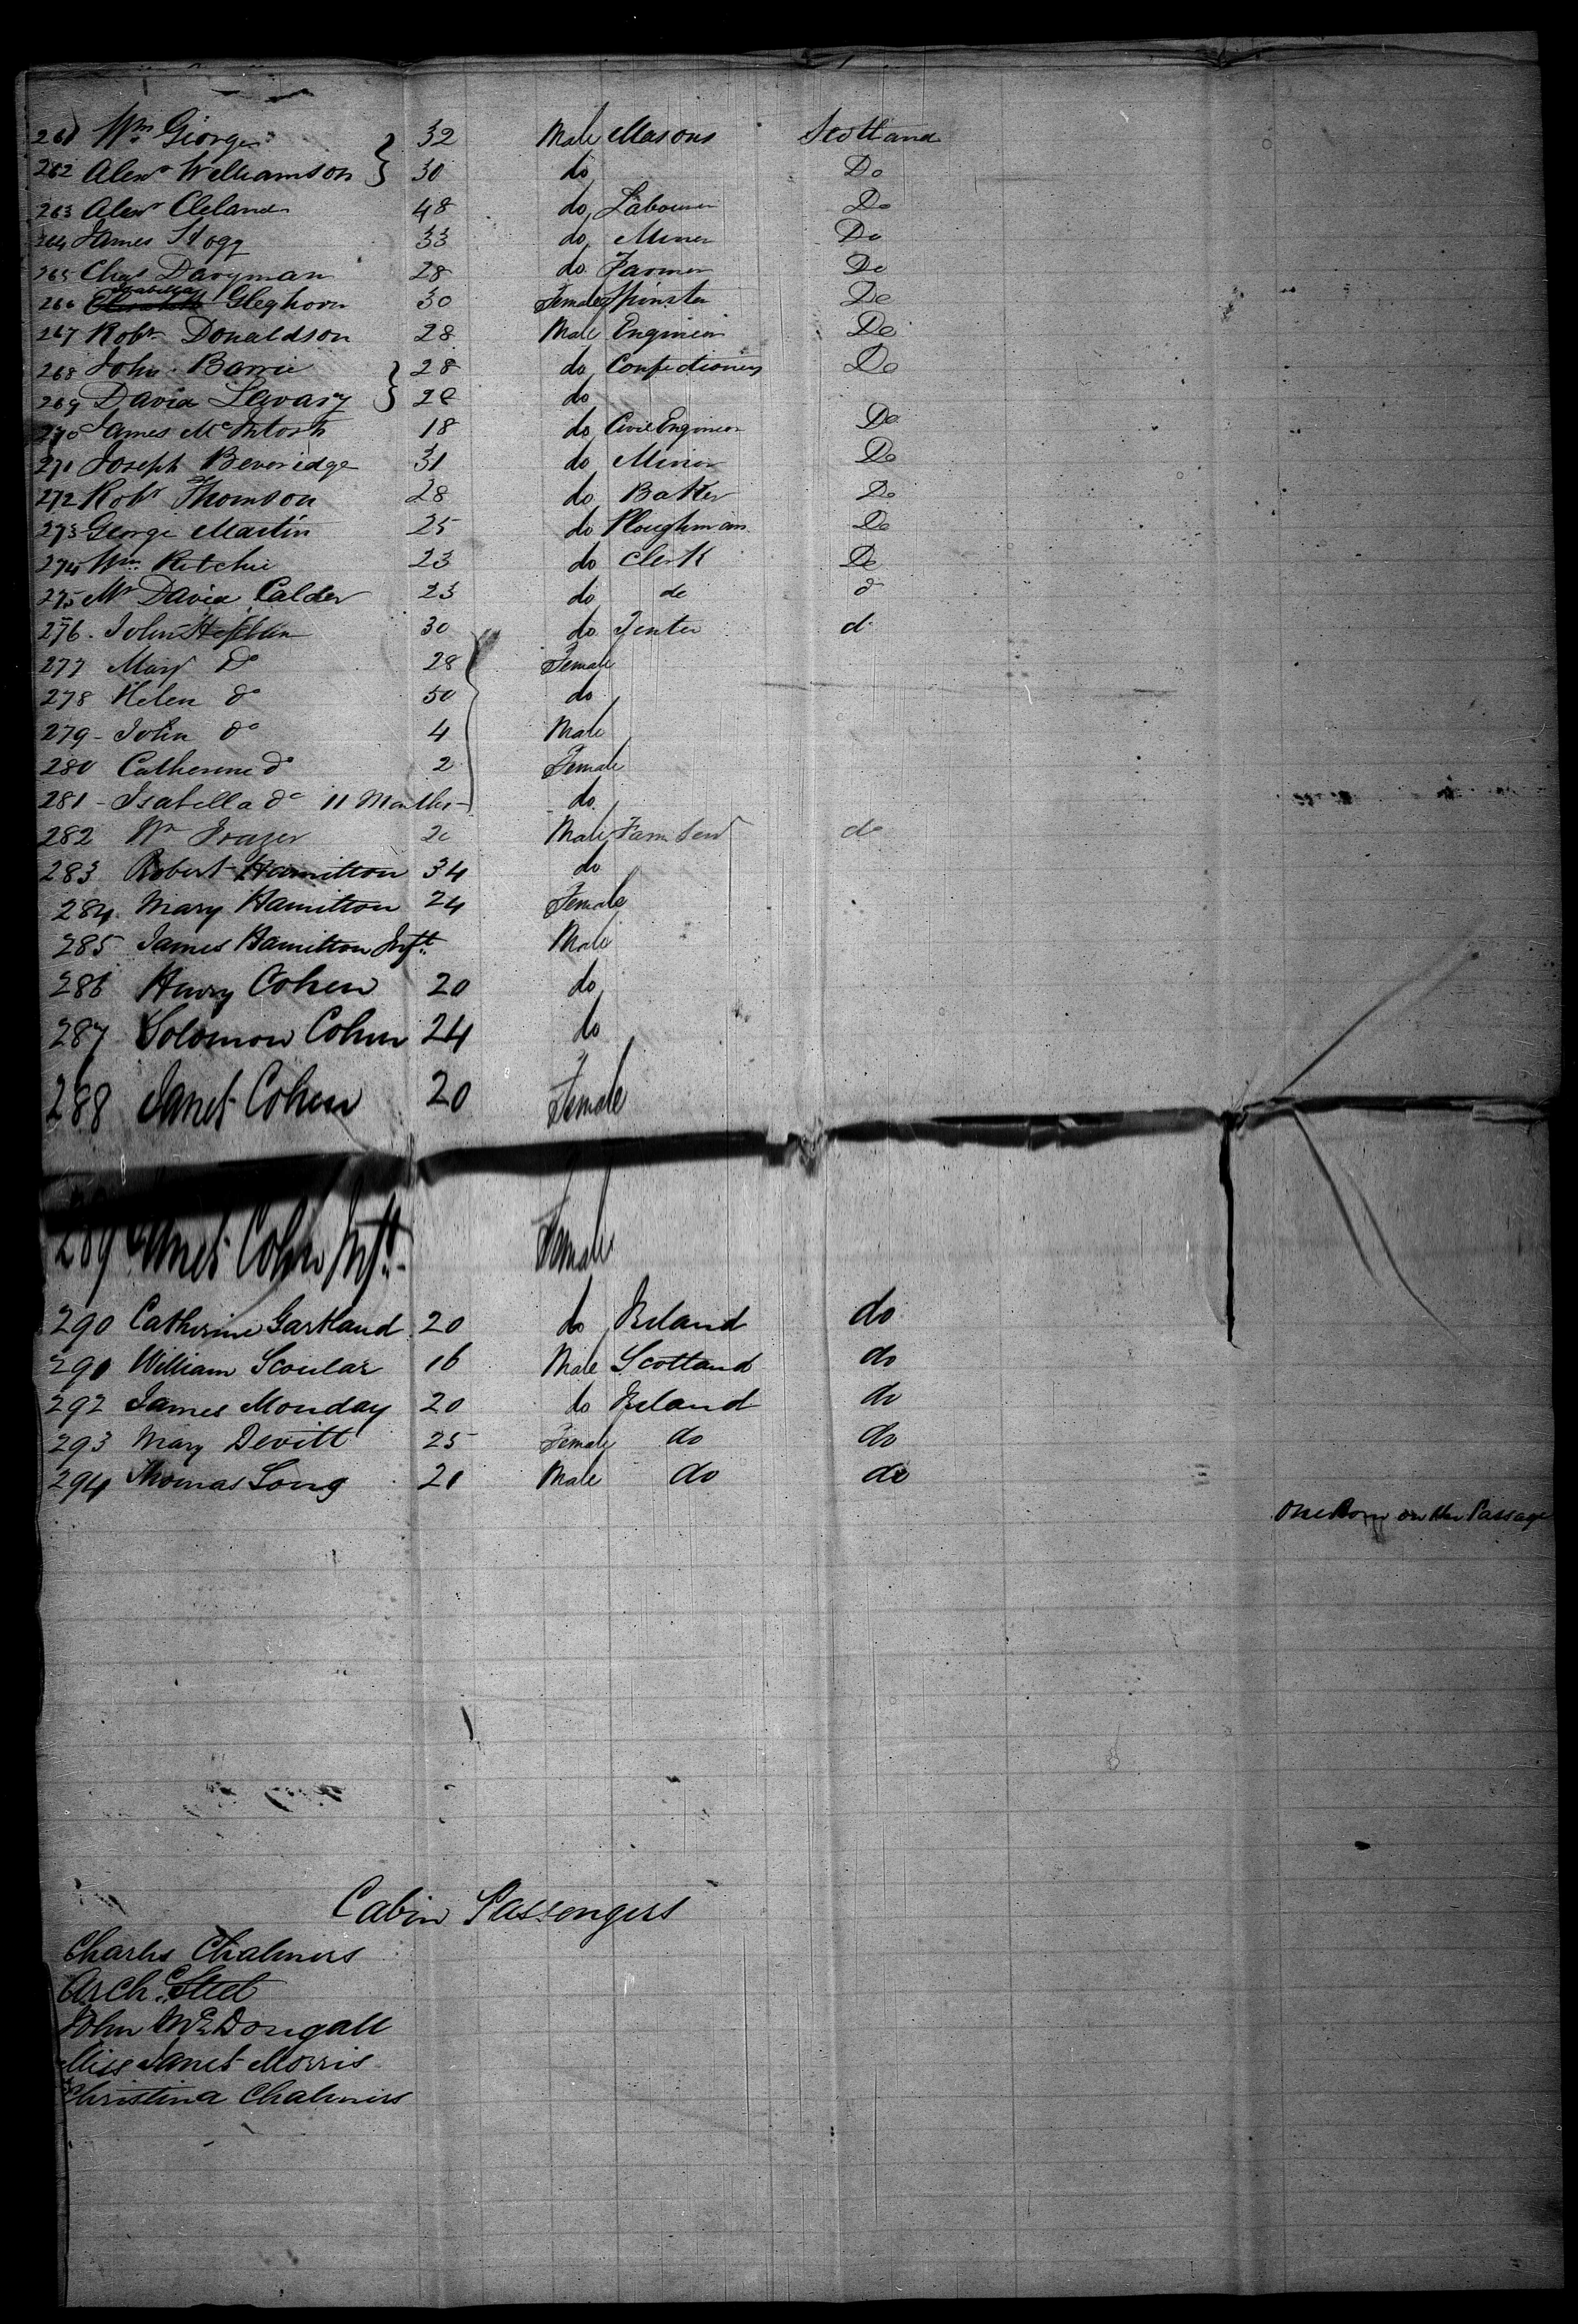 261 Wm George 32 Male Masons Scotland
262 Alexr Williamson 30 do Do
263 Alexr Cleland 48 do Labourer Do
264 James Hogg 33 do Miner Do
265 Chas Daryman 28 do Farmer Do
266 Isabella Gleghorn 30 Female Spinster Do
267 Robt Donaldson 28 Male Engineer Do
268 John Barrie 28 do Confectioners Do
269 David do
270 James McIntosh 18 do Civil Engineer Do
271 Joseph Beveridge 31 do Miner Do
272 Robt Thomson 28 do Baker Do
273 George Martin 25 do Ploughman Do
274 Wm Ritchie 23 do Clerk Do
275 Mr David Calder 23 do do d
276. John 30 do Tenter d
277 Mary Do 28 Female
278 Helen do 50 do
279 - John do 4 Male
280 Catherine do 2 Female
281 - Isabella do 11 Months do
282 Wm Frazer 20 Male Farm Servt do
283 Robert Hamilton 34 do
284. Mary Hamilton 24 Female
285 James Hamilton Inft. Male
286 Henry Cohen 20 do
287 Solomon Cohen 24 do
288 Janet Cohen 20 Female
289 Janet Cohen Inft. Female
290 Catherine Gartland 20 do Ireland do
291 William Scoular 16 Male Scotland do
292 James Monday 20 do Ireland do
293 Mary Devitt 25 Female do do
294 Thomas Long 21 Male do do
One Born on the Passage
Cabin Passengers
Charles Chalmers
Archd. Steel
John McDougall
Miss Janet Morris
Christina Chalmers